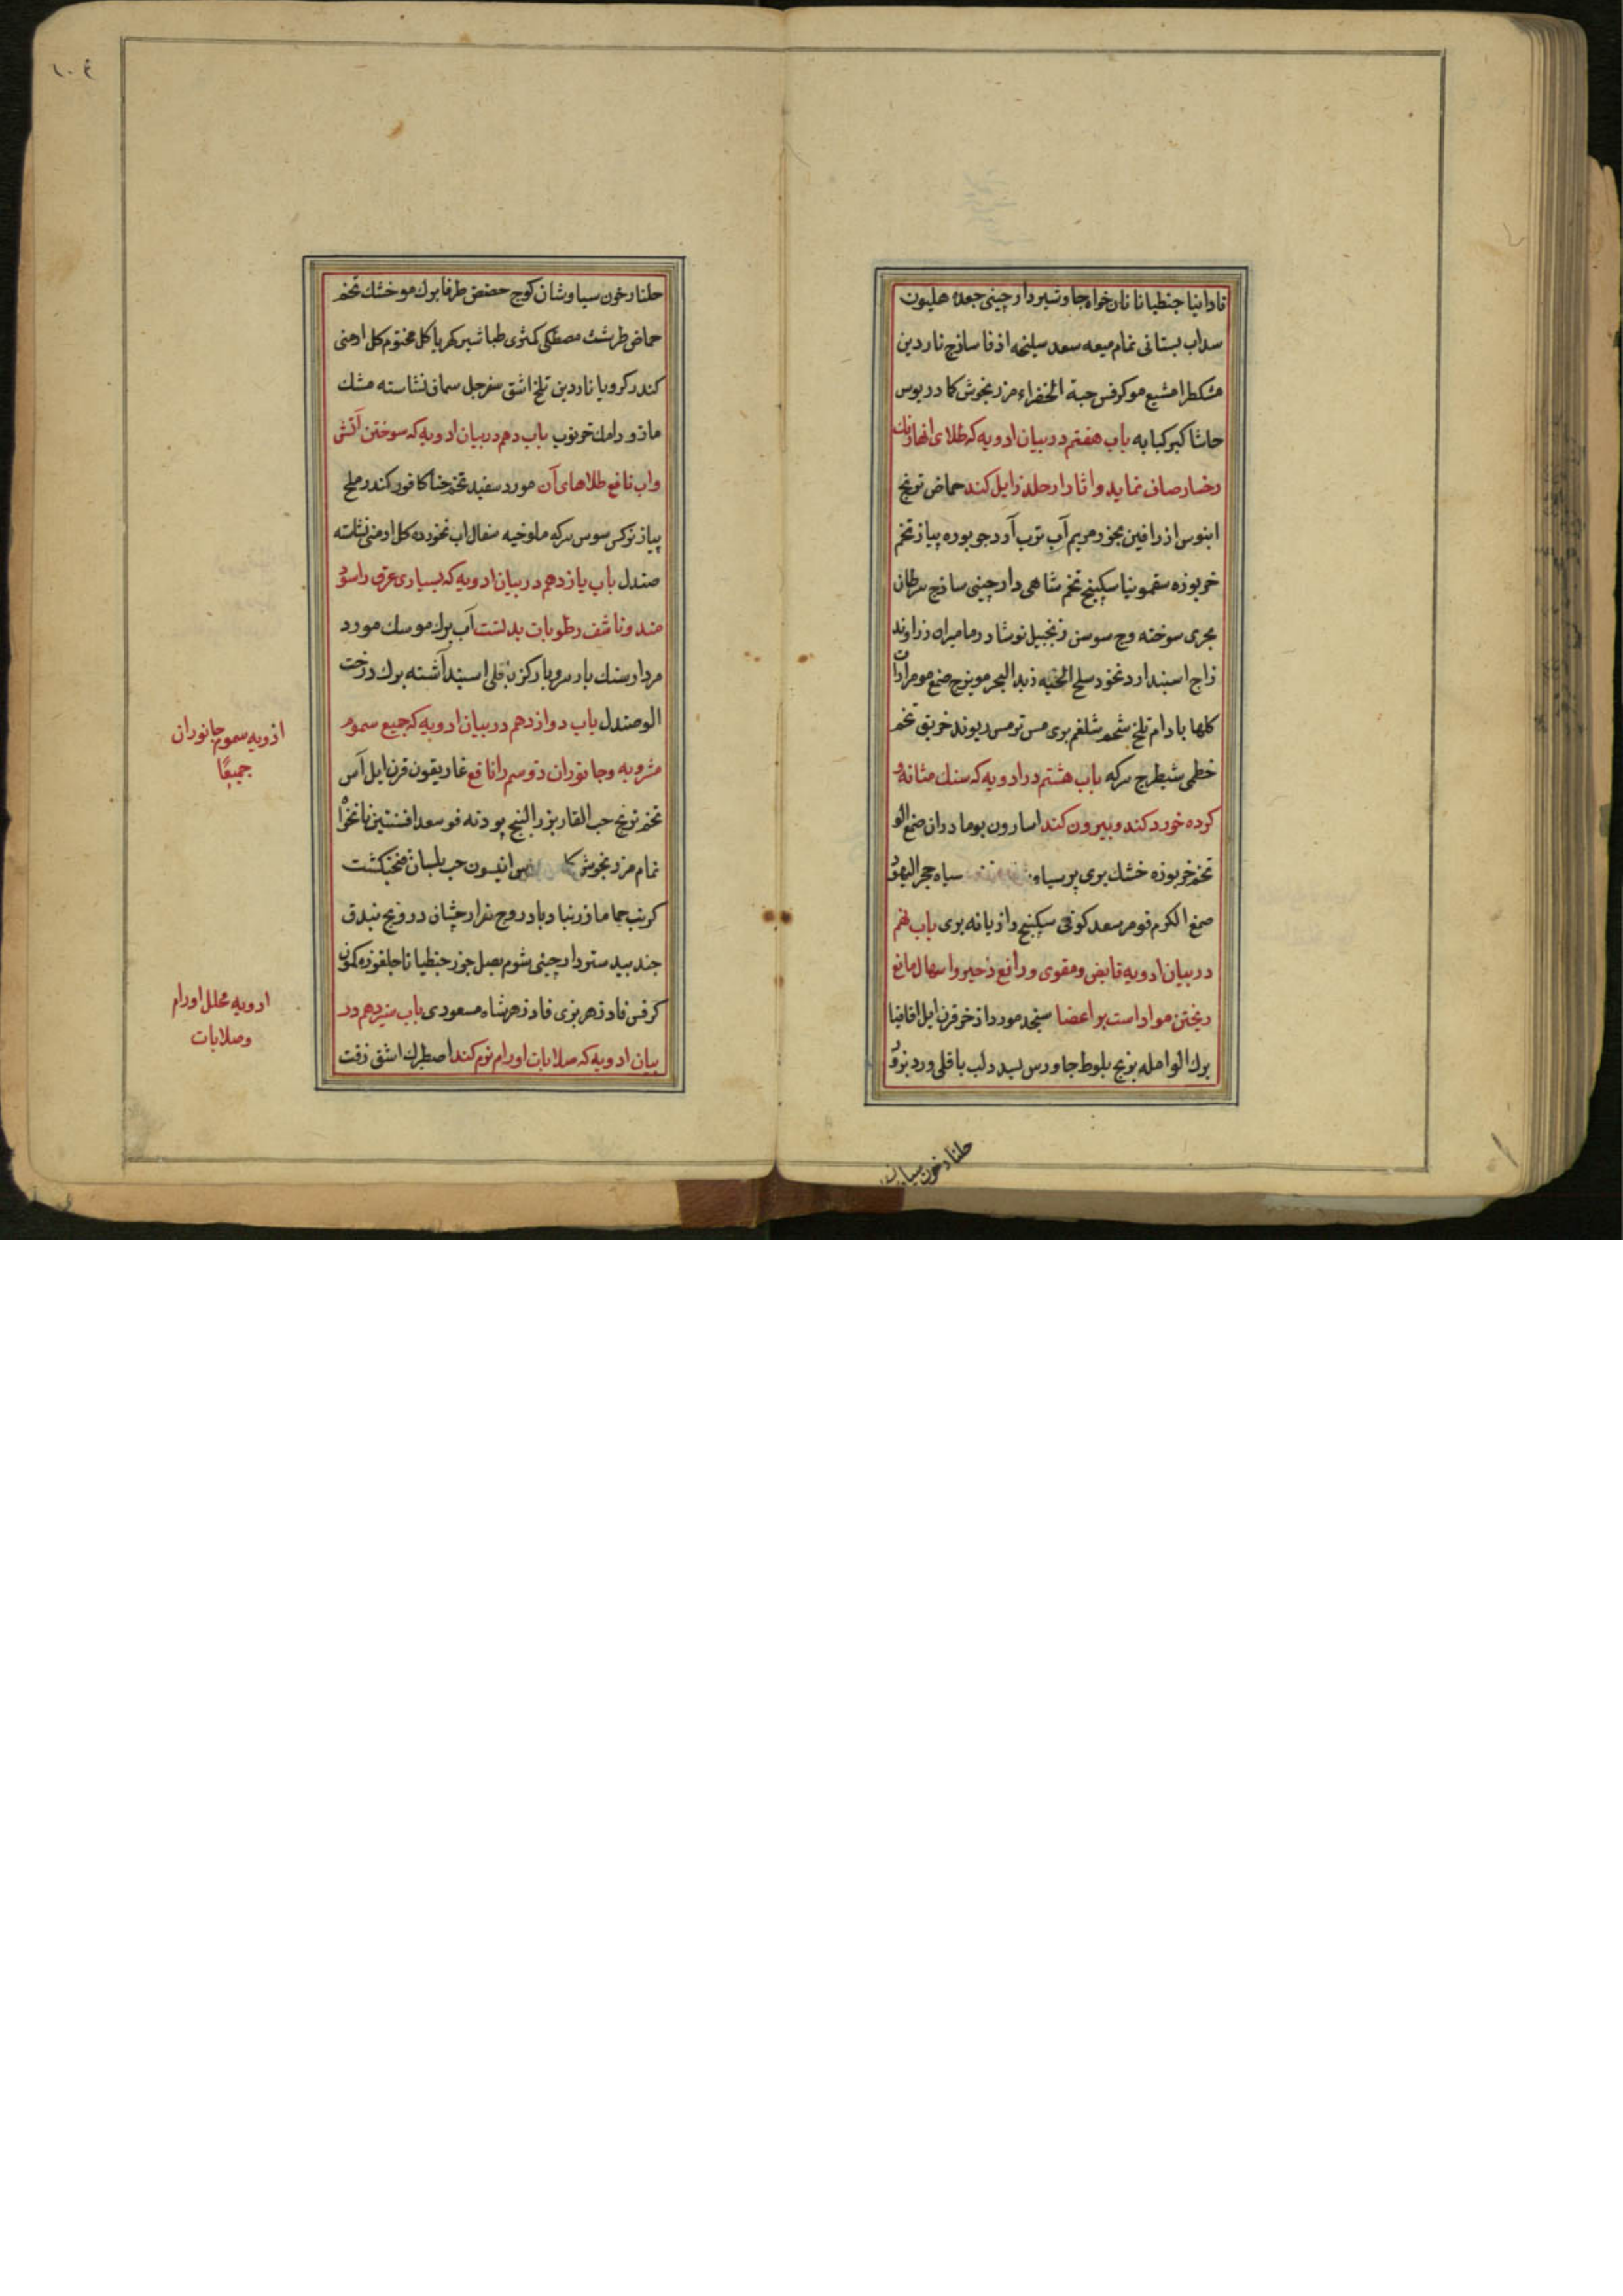 فادانیا جنطیانا نان خواه جاوشیر دارچینی جعده هلیون
سداب بستانی نمام میعه سعد سیلنحه اذفا ساذج ناردین
مشکطرامشیع موکرفس حبة الخضراء مرزنجوش کمادریوس
حاشا کبر کبابه باب هفتم در بیان ادویه که طلای انها رنك
رخسار صاف نماید و اثار از جلد زایل کند حماض ترنج
ابنوس اذرافین بخور مریم آب ترب آرد جو بوره پیاز تخم
خربوزه سقمونیا سکبینج تخم شاهی دارچینی ساذج سرطان
بحری سوخته وج سوسن زنجبیل نوشادر مامیران زراوند
زاج اسبند ارد نخود سلح الحیه زبد البحر مویزج صمغ مو مرارات
کلها بادام تلخ شحم شلغم بری مس ترمس ریوند خربق تخم
خطمی شیطرج سرکه باب هشتم در ادویه که سنك مثانه و
کرده خورد کند و بیرون کند اسارون بومادران صمغ الو
تخم خربوزه خشك بری پرسیاوشان سیاه حجر الیهود
صمغ الکرم فومر سعد کوفی سکبینج رازیانه بری باب نهم
در بیان ادویه قابض و مقوی و رافع زحیر و اسهال مانع
ریختن مواد است بر اعضا سنجد مورد اذخر قرن ایل اقاقیا
برك الو امله بزنج بلوط جاورس لسید دلب باقلی ورد بزور
جلنار خون سیاوشان
جلنار خون سیاوشان کوج حضض طرفا برك مو خشك تخم
حماض طرشث مصطکی کمثری طباشیر کهربا کل مختوم کل ارمنی
کندر کرویا ناردین تلخ اشق سفرجل سماق نشاسته مشك
مازو رامك خرنوب باب دهم در بیان ادویه که سوختن آتش
و اب نافع طلاهای آن مورد سفید تخم حنا کافور کندر ملح
پیاز نرکس سوس سرکه ملوخیه سفال اب نخورده کل ارمنی نشاسته
صندل باب یازدهم در بیان ادویه که بسیاری عرق را سود
مند و ناشف رطوبات بدنست آب برك مو سك مورد
مردارسنك بارسرو بارکز باقلی اسبند آشته برك درخت
الو صندل باب دوازدهم در بیان ادویه که جمیع سموم
مشروبه و جانوران ذو سم را نافع غاریقون قرن ایل آس
تخم ترنج حب الغار بزر البنج پودنه فو سعد افسنتین نانخواه
نمام مرزنجوش انیسون حب بلسان فنجنکشت
کرنب حماما زرنباد بادروج هزارجشان درونج بندق
جند بیدستر دارچینی شوم بصل جوز جنطیانا جلغوزه کمون
کرفس فادزهر بزی فادزهر شاه مسعودی باب سیزدهم در
بیان ادویه که صلابات اورام نرم کند اصطرك اشق زفت
ادویه سموم جانوران
جمیعًا
ادویه محلل اورام
و صلابات